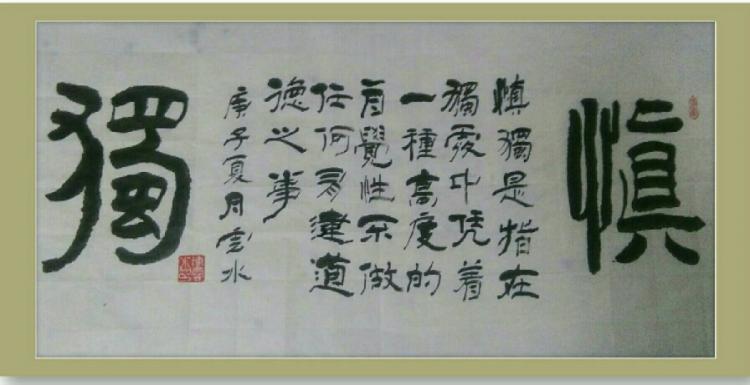 慎
慎獨是指在
獨處中凭着
一種高度的
自覺性不做
任何有違道
德之事
庚子夏月雲水
獨